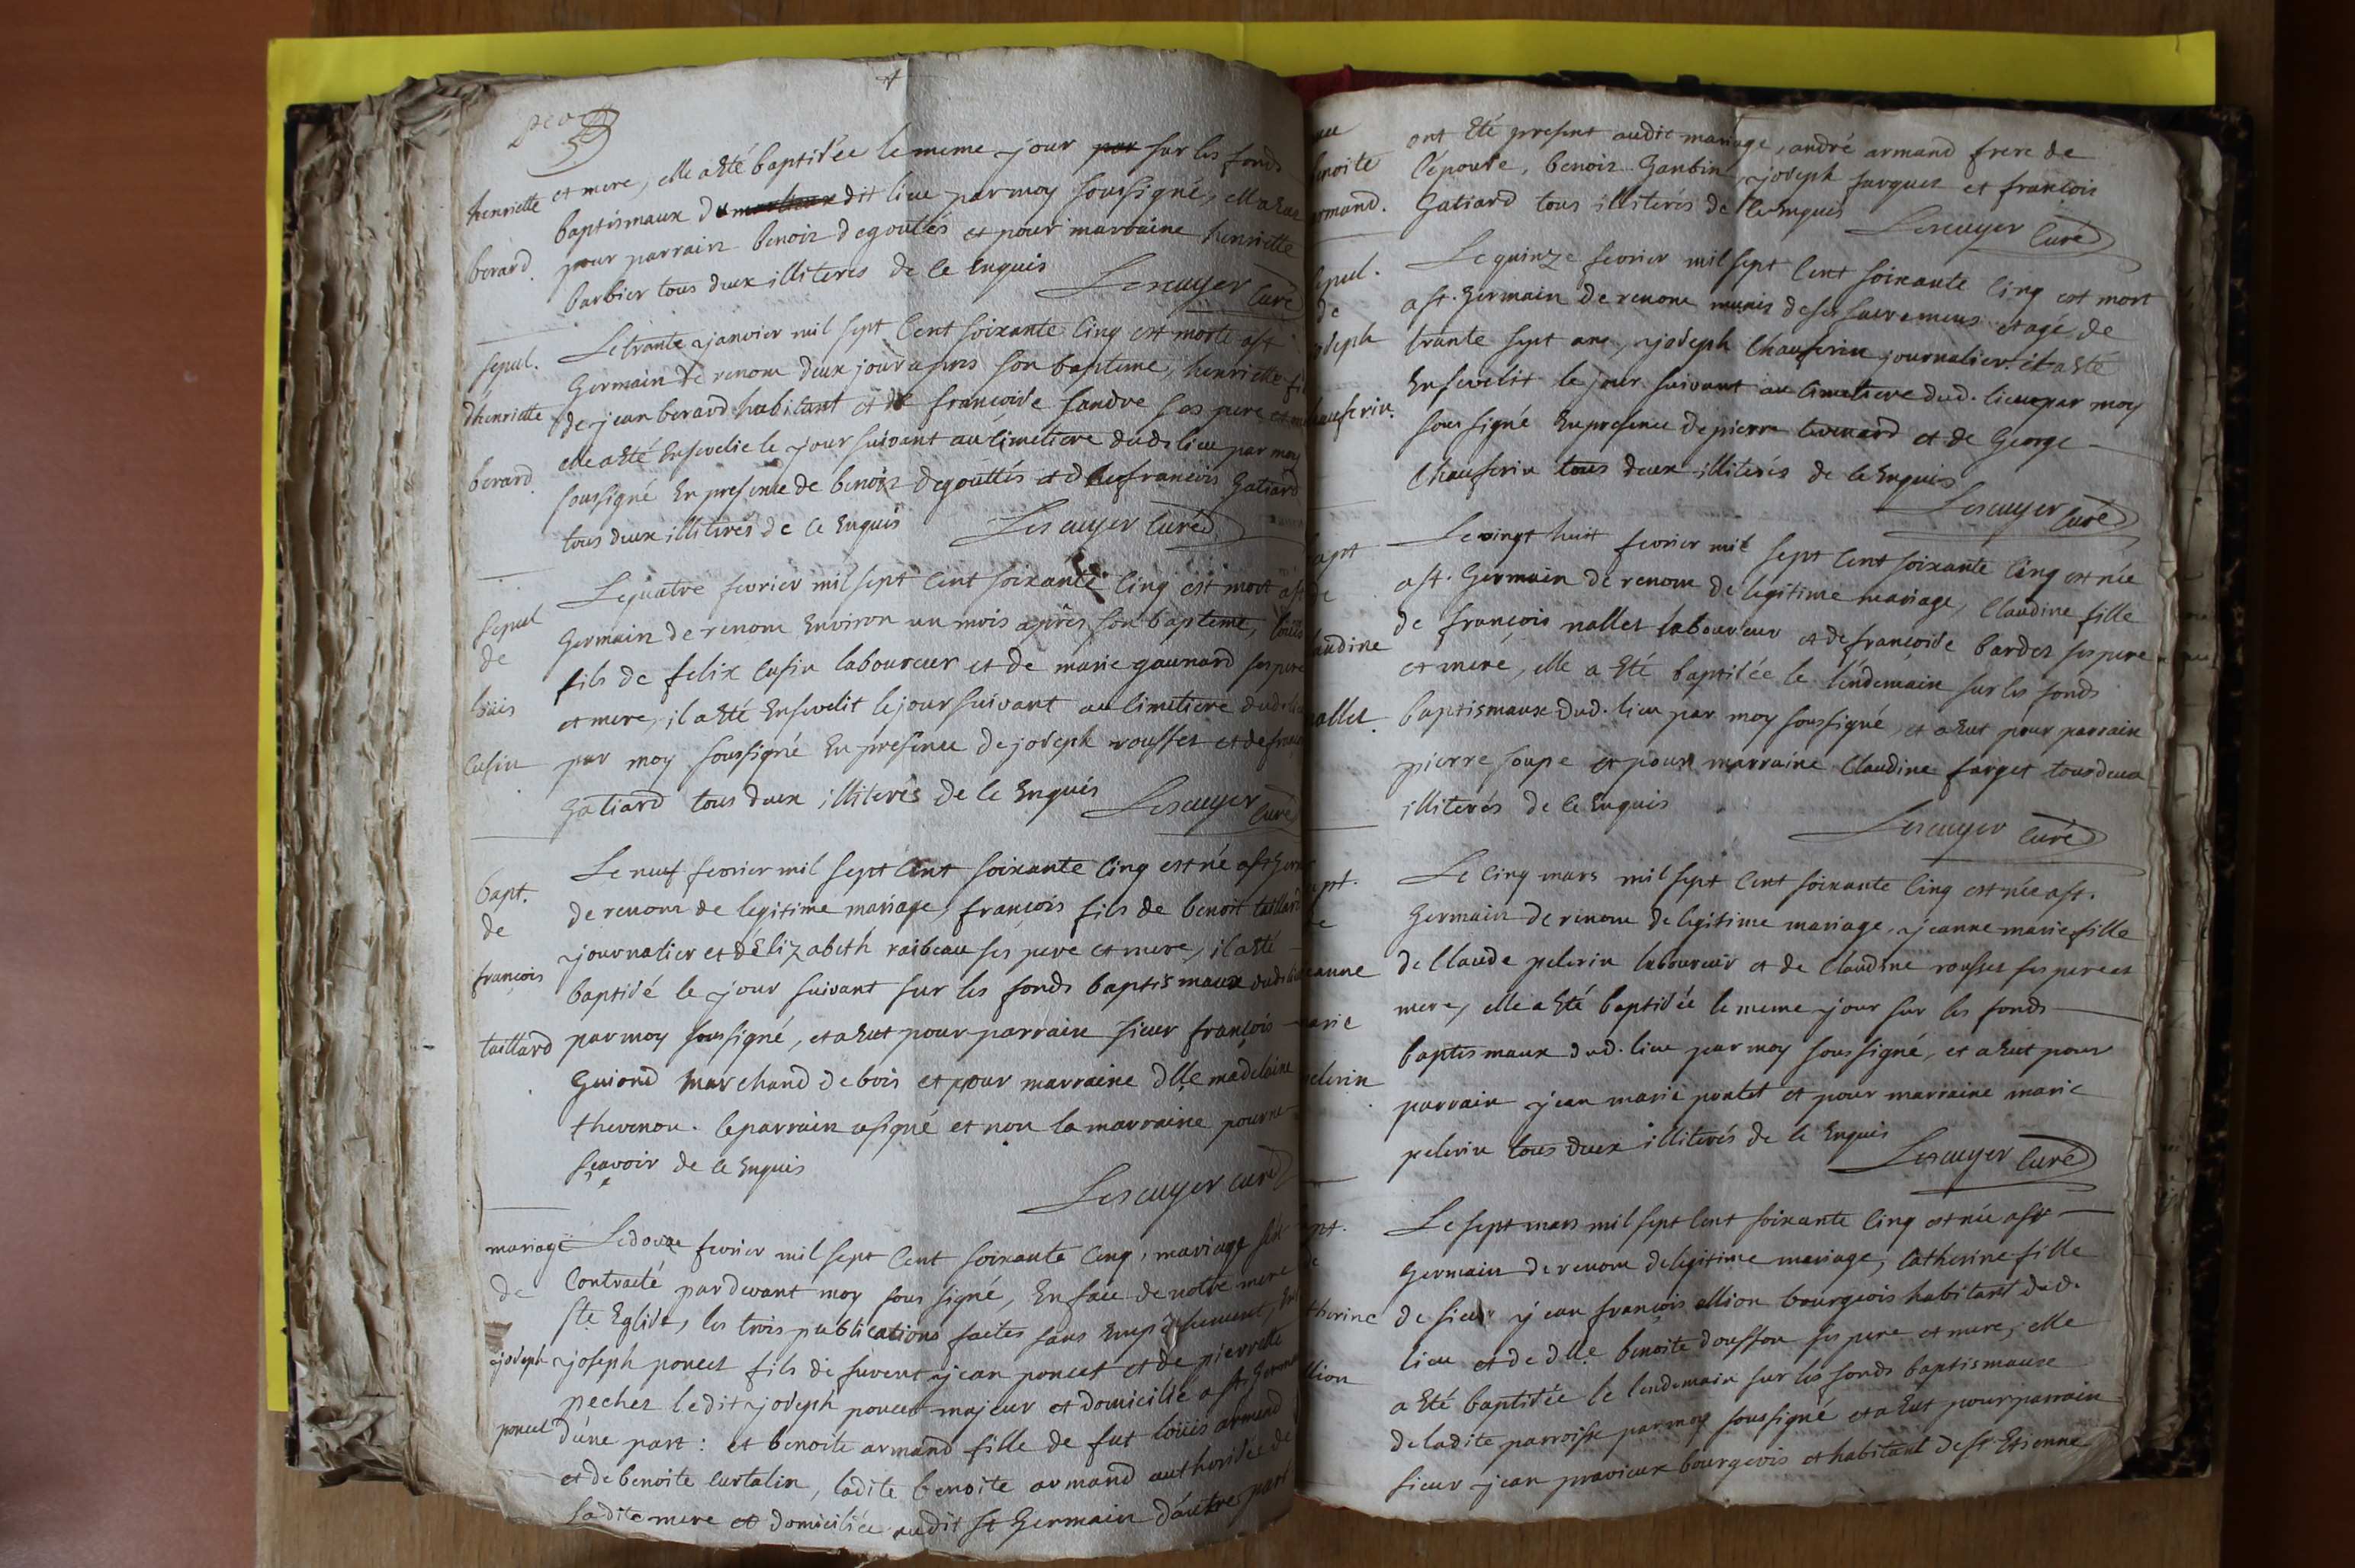 henriette
berard.
et mere, elle a Eté baptisée le meme jour par sur les fonds
baptismaux du dit lieu par moy soussigné, elle a Eue
pour parrain benoit degoutés et pour marraine henriette
barbier tous deux illiterés de ce Enquis
Lescuyer Curé
sepul.
d'henriette
berard.
Le trante janvier mil sept Cent soixante Cinq est morte a st
Germain de renom deux jour apres son bapteme, henriette
de jean berard habitant et de francoise fandre ses pere et
elle a Eté Ensevelie le jour suivant au Cimetiere dud. lieu par moy
soussigné En presence de benoit degouttés et de francois Gatiard
tous deux illiterés de ce Enquis Lescuyer Curé
sepul
de
loüis
Cusin
Le quatre fevrier mil sept Cent soixante Cinq est mort a st
Germain de renom Environ un mois apres son bapteme, loüis
fils de felix Cusin laboureur et de marie gaunard ses pere
et mere, il a Eté Ensevelit le jour suivant au Cimetiere dud. lieu
par moy soussigné En presence de joseph rousset et de francois
Gatiard tous deux illiterés de ce Enquis Lescuyer Curé
bapt.
de
françois
taillard
Le neuf fevrier mil sept Cent soixante Cinq est né a st Germ
de renom de legitime mariage, françois fils de benoit taillard
journalier et d'Elizabeth raibeau ses pere et mere, il a Eté
baptisé le jour suivant sur les fonds baptismaux dud. lieu
par moy soussigné, et a Eut pour parrain sieur françois
Guiond marchand de bois et pour marraine dlle madelaine
thevenon. le parrain a signé et non la marraine pour ne
sçavoir de ce Enquis
Lescuyer curé
mariage
de
joseph
poncet
Le douze fevrier mil sept Cent soixante Cinq, mariage
Contracté pardevant moy soussigné, En face de notre mere
ste Eglise, les trois publications faites sans Empechement,
joseph poncet fils de jean poncet et de pierrette
pechet ledit joseph poncet majeur et domicilié a st. Germ
d'une part: et benoite armand fille de fut loüis armand
et de benoite curtalin, ladite benoite armand authorisée de
sadite mere et domiciliée audit st Germain d'autre part
benoite
armand.
ont Eté present audit mariage, andré armand frere de
l'épouse, benoit Ganbin, joseph farguet et françois
Gatiard tous illiterés de ce Enquis Lescuyer Curé
sepul.
de
joseph
Chauferin.
Le quinze fevrier mil sept Cent soixante Cinq est mort
a st. Germain de renom munis de ses sacremens et agé de
trante sept ans, joseph Chauferin journalier. il a Eté
Ensevelit le jour suivant au Cimetiere dud. lieu par moy
soussigné En presence de pierre tevenard et de George
Chauferin tous deux illiterés de ce Enquis
Lescuyer Curé
bapt
de
Claudine
nallet.
Le vingt huit fevrier mil sept Cent soixante Cinq est née
a st. Germain de renom de legitime mariage, Claudine fille
de françois nallet laboureur et de françoise bardet ses pere
et mere, elle a Eté baptisée le lendemain sur les fonds
baptismaux dud. lieu par moy soussigné, et a Eut pour parrain
pierre soupe et pour marraine Claudine farget tous deux
illiterés de ce Enquis
Lescuyer Curé
bapt.
de
jeanne
marie
pelerin
Le Cinq mars mil sept Cent soixante Cinq est née a st.
Germain de renom de legitime mariage, jeanne marie fille
de Claude pelerin laboureur et de Claudine rousset ses pere et
mere, elle a Eté baptisée le meme jour sur les fonds
baptismaux dud. lieu par moy soussigné, et a Eut pour
parrain jean marie pontet et pour marraine marie
pelerin tous deux illiterés de ce Enquis
Lescuyer Curé
bapt.
de
Catherine
allion
Le sept mars mil sept Cent soixante Cinq est née a st
Germain de renom de legitime mariage, Catherine fille
de sieur jean françois allion bourgeois habitant dud.
lieu et de dlle benoite dousson ses pere et mere, elle
a Eté baptisée le lendemain sur les fonds baptismaux
de ladite parroisse par moy soussigné et a Eut pour parrain
sieur jean pravieux bourgeois et habitant de st. Etienne